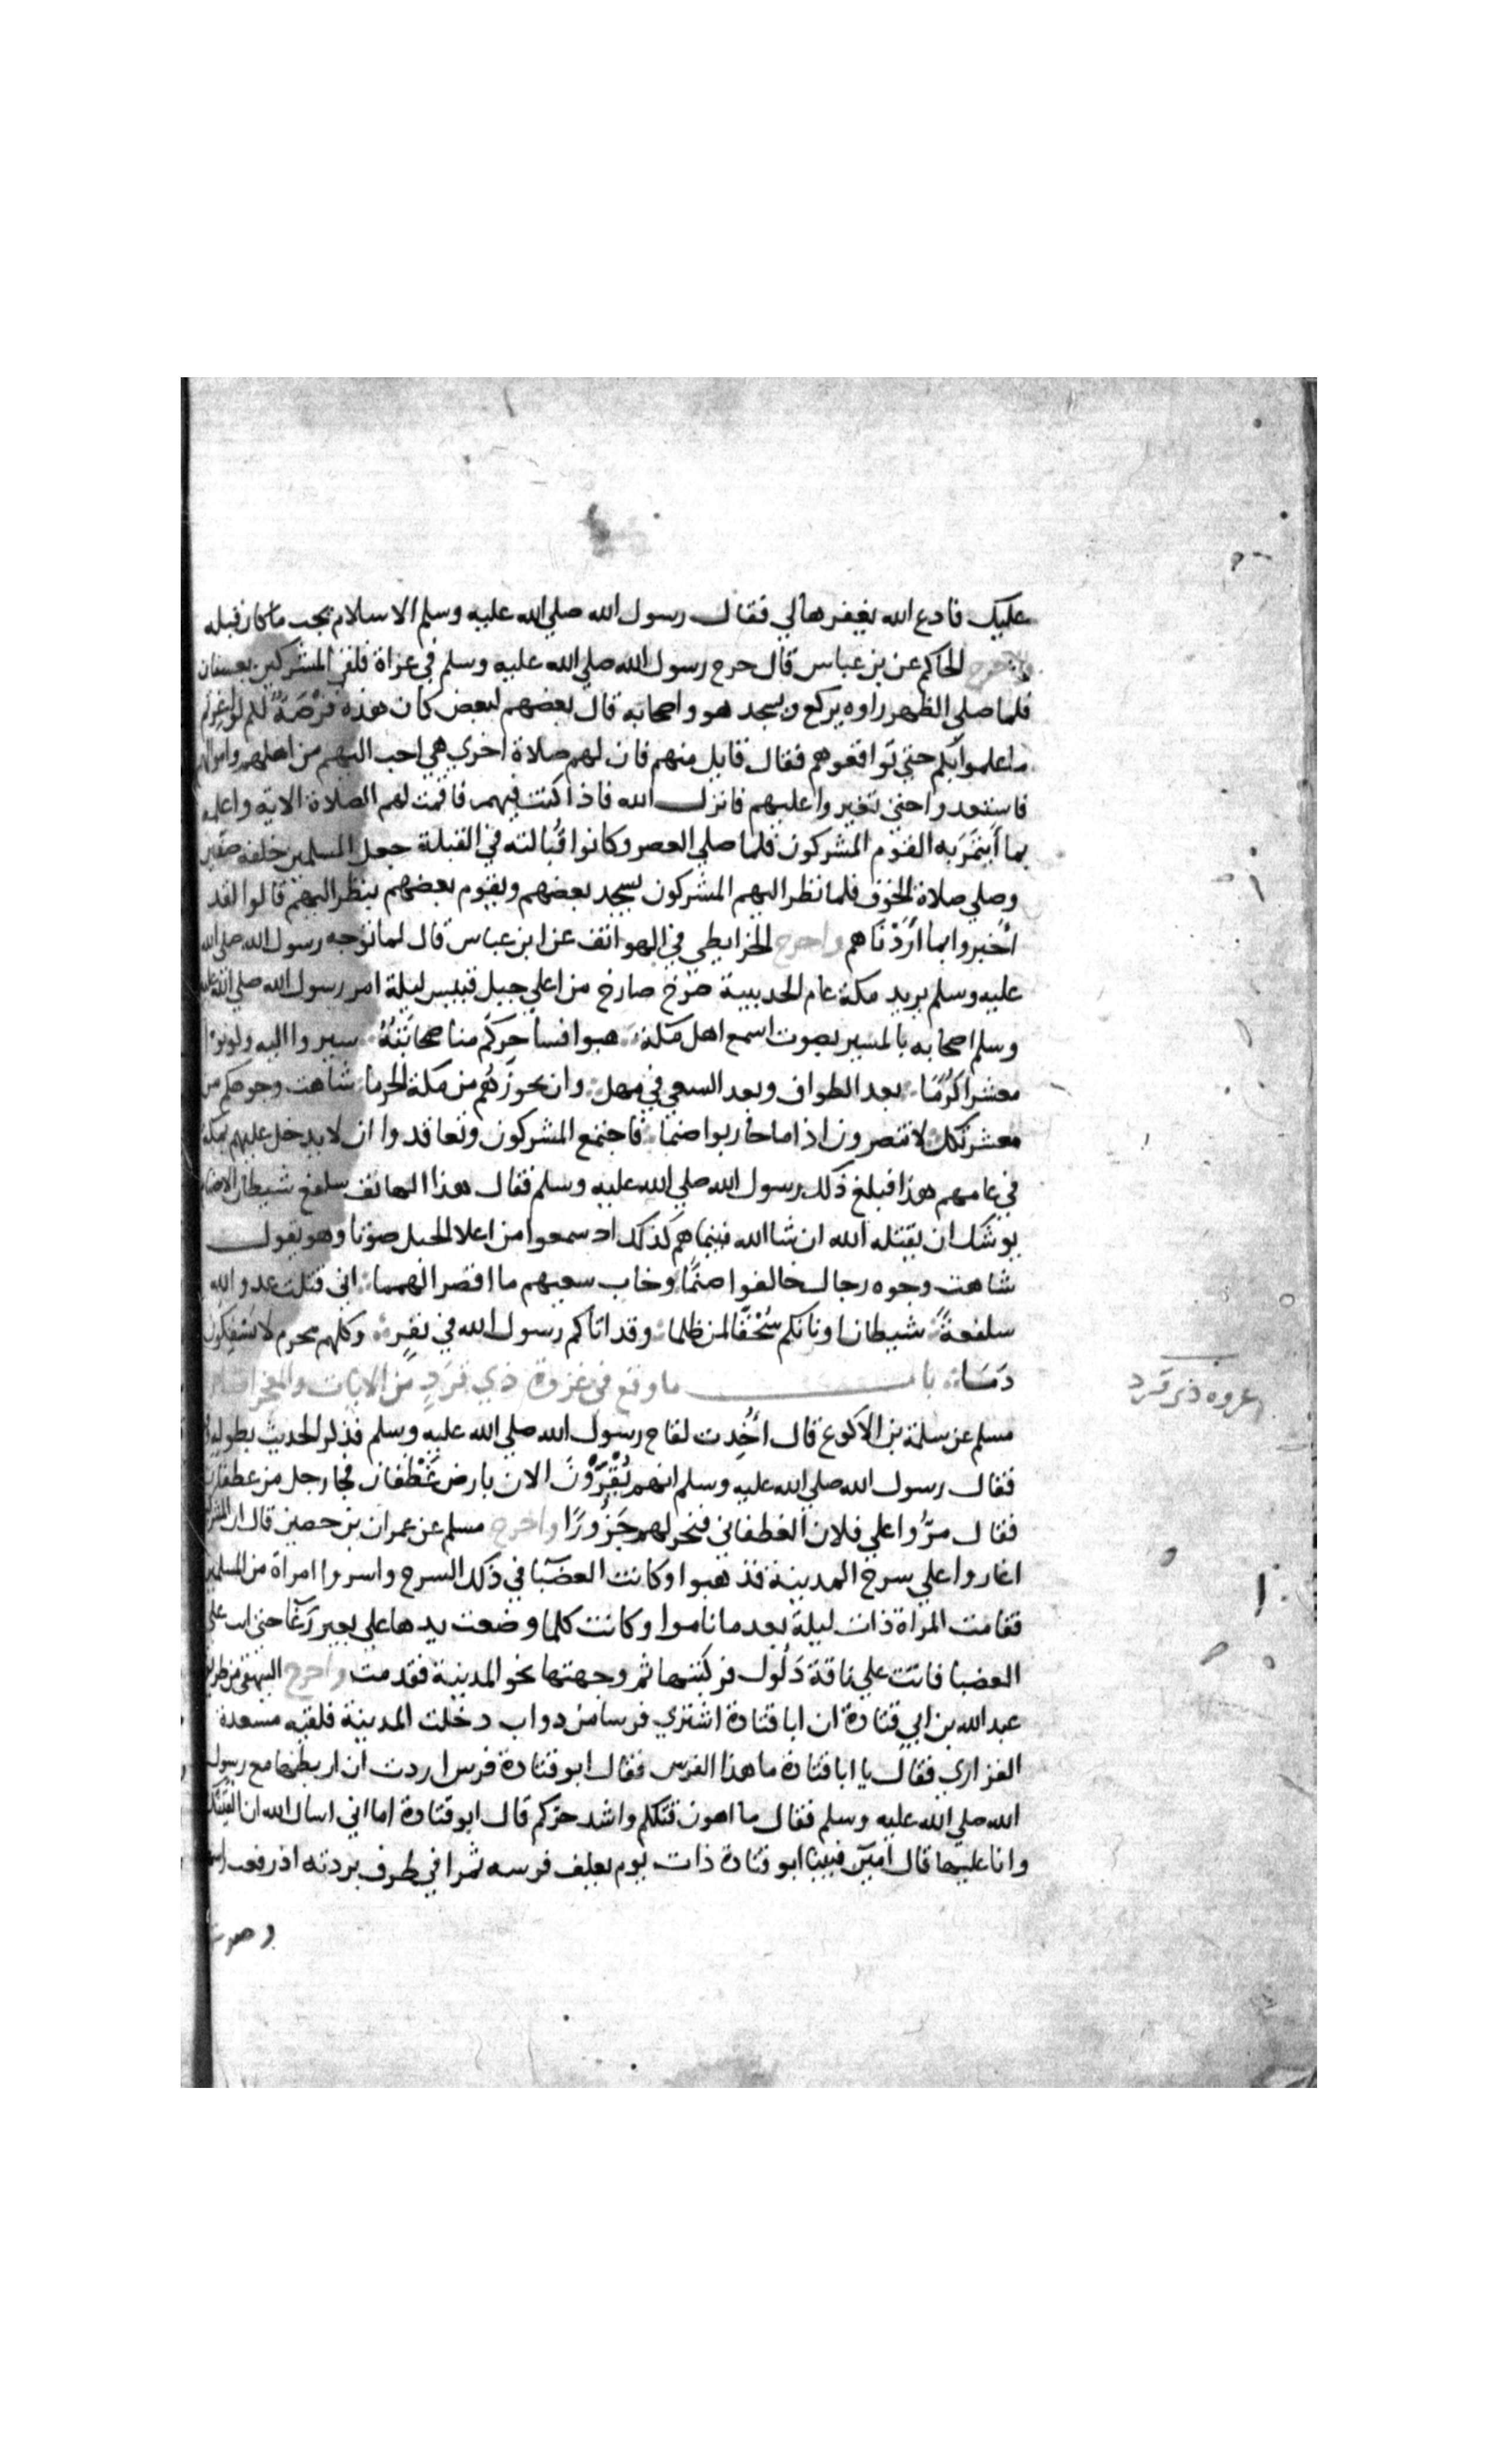 عليك فادع الله يغفرها لي فقال رسول الله صلي الله عليه وسلم الاسلام يجب ما كان قبله
واخرج الحاكم عن بن عباس قال خرج رسول الله صلي الله عليه وسلم في غزاة فلقي المشركين بعسفان
فلما صلي الظهر راوه يركع ويسجد هو واصحابه قال بعضهم لبعض كان هذه فرصة لكم لو اغرتم
ما علموا بكم حتي تواقعوهم فقال قايل منهم فان لهم صلاة اخري هي احب اليهم من اهلهم واموالهم
فاستعدوا حتي تغيروا عليهم فانزل الله فاذا كنت فيهم فاقمت لهم الصلاة الاية واعلمه
بما أيتمَرَ به القوم المشركون فلما صلي العصر وكانوا قُبالته في القبلة جعل المسلمين خلفه صفين
وصلي صلاة الخوف فلما نظر اليهم المشركون يسجد بعضهم ويقوم بعضهم ينظر اليهم قالوا لقد
أُخبروا بما أَرَدْنَاهم واخرج الخرايطي في الهواتف عن ابن عباس قال لما توجه رسول الله صلي الله
عليه وسلم يريد مكة عام الحديبية صرخ صارخ من اعلي جبل قبيس ليلة امر رسول الله صلي الله عليه
وسلم اصحابه بالمسير بصوت اسمع اهل مكة هبوا فساحركم منا صحابَتَهُ سيروا اليه وكونوا
معشرا كَرُمَا بعد الطواف وبعد السعي في مهل وان يحوزهُم من مكة الحرما شاهت وجوهكم من
معشر تكل لا تنصرون اذا ما حاربوا صنما فاجتمع المشركون وتعاقدوا ان لا يدخل عليهم بمكة
في عامهم هذا فبلغ ذلك رسول الله صلي الله عليه وسلم فقال هذا الهاتف سلفع شيطان الاصنام
يوشك ان يقتله الله ان شا الله فبينما هم كذلك اذ سمعوا من اعلا الجبل صوتا وهو يقول
شاهت وجوه رجال خالفوا صنمًا وخاب سعيهم ما اقصر الهمما اني قتلت عدو الله
سلفعةً شيطان اوثانكم سُحْقًا لمن ظلما وقد اتاكم رسول الله في نفرٍ وكلهم محرم لا يسفكون
دَمَا باب ما وقع في غزوة ذي قَرَدٍ من الايات والمعجزات
غزوه ذي قرد
مسلم عن سلمة بن الاكوع قال أُخِدت لقاح رسول الله صلي الله عليه وسلم فذكر الحديث بطوله
فقال رسول الله صلي الله عليه وسلم انهم يُقْرَوْنَ الان بارض غَطْفان فجا رجل من غطفان
فقال مرُّوا علي فلان الغطفاني فنحر لهم جَزُورًا واخرج مسلم عن عمران بن حصين قال
اغاروا علي سرح المدينة فذهبوا وكانت العضبا في ذلك السرح واسروا امراة من المسلمين
فقامت المراة ذات ليلة بعد ما ناموا وكانت كلما وضعت يدها علي بعير رَغَا حتي اتت علي
العضبا فاتت علي ناقة ذَلُول فركبتها ثم وجهتها نحو المدينة فقدمت واخرج البيهقي من طريق
عبد الله بن ابي قتادة ان ابا قتادة اشتري فرسا من دواب دخلت المدينة فلقيه مسعدة
الفزاري فقال يا ابا قتادة ما هذا الفرس فقال ابو قتادة فرس اردت ان اربطها مع رسول
الله صلي الله عليه وسلم فقال ما اهون قتلكم واشد حركم قال ابو قتادة اما اني اسال الله ان القينك
وانا عليها قال امين فبينا ابو قتادة ذات يوم يعلف فرسه تمرا في طرف بردته اذ رفعت